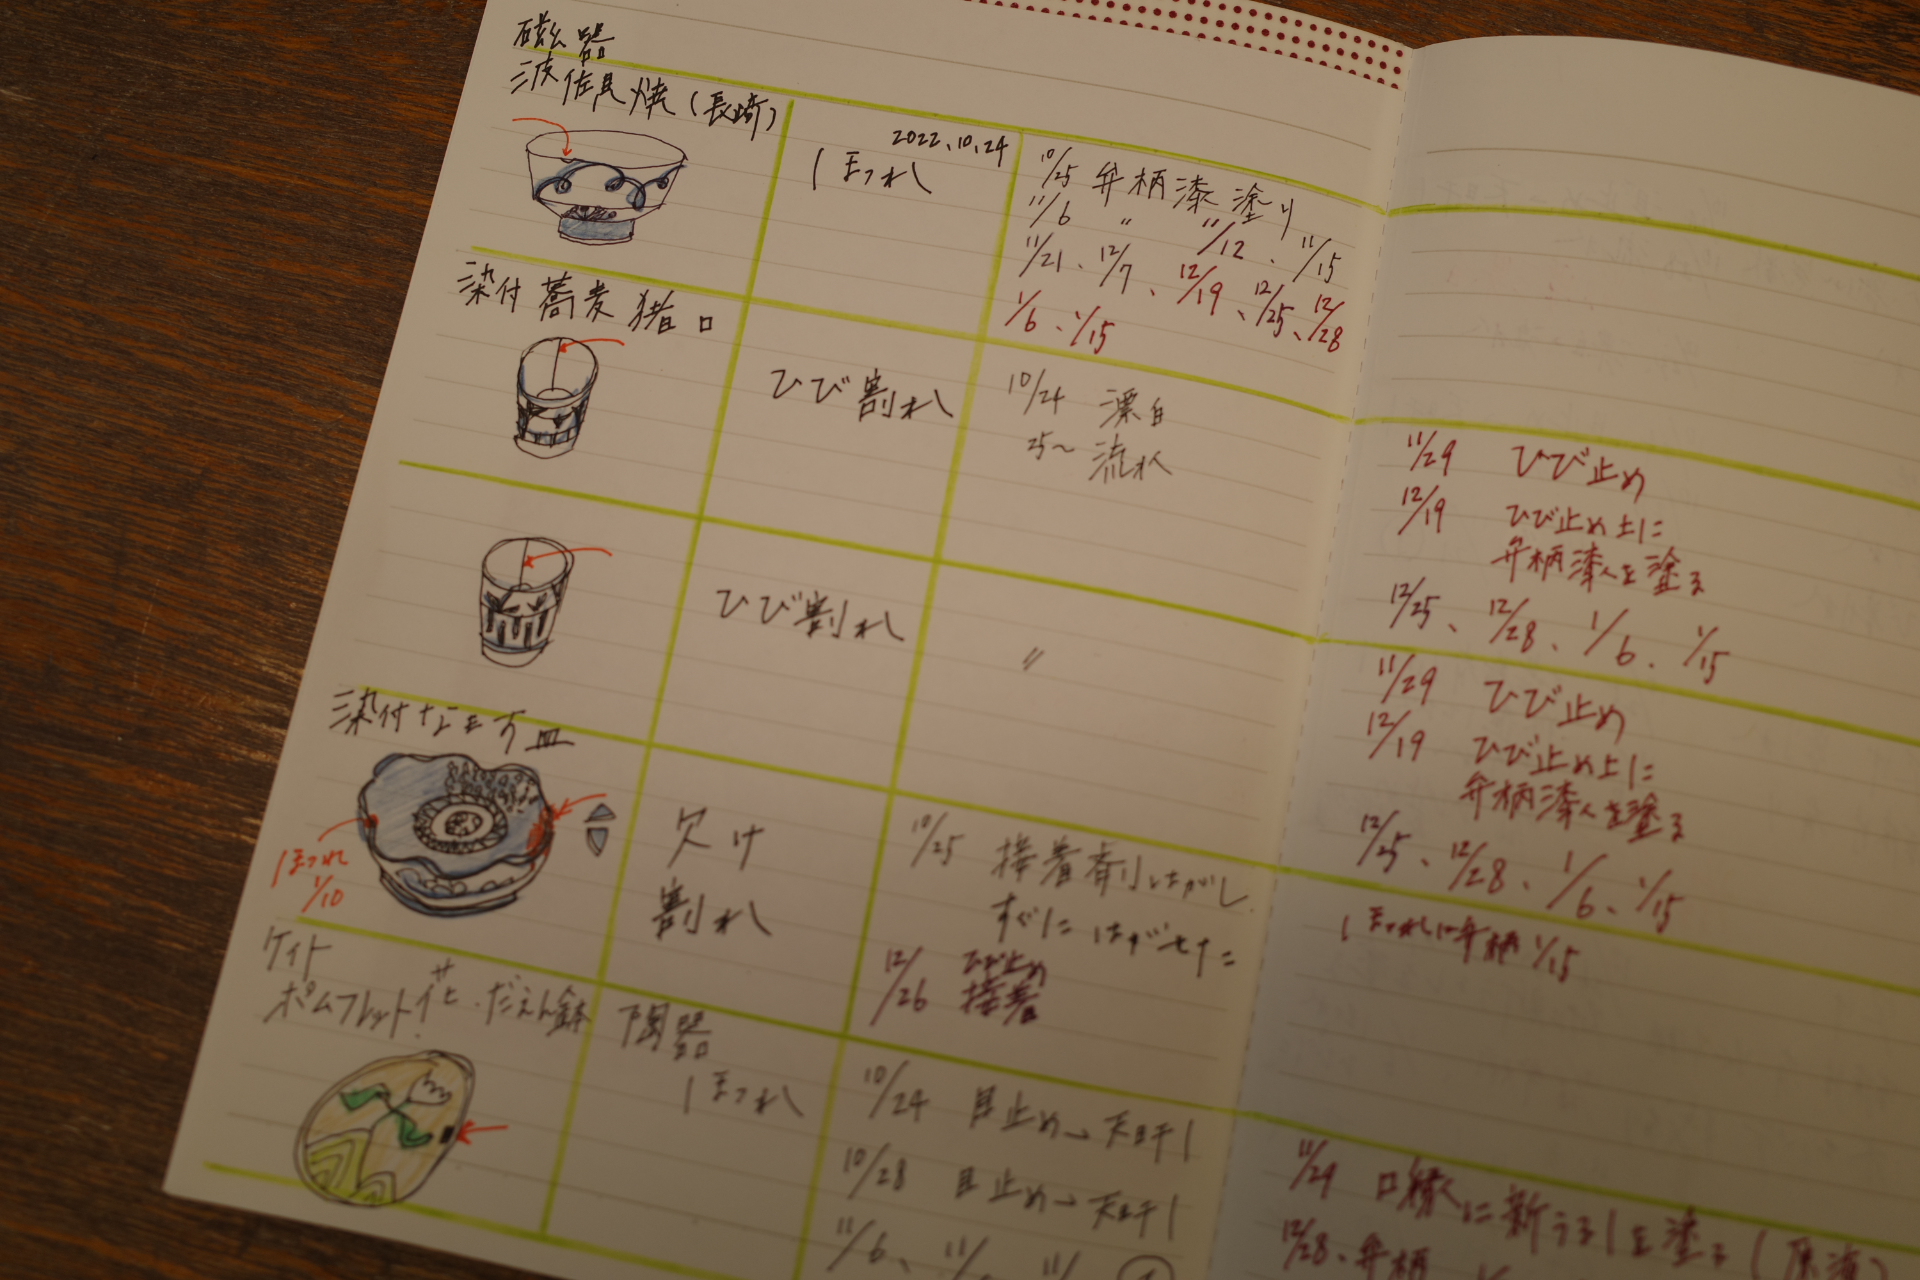 磁器
波佐見焼(長崎)
2022.10.24
ほつれ
10/25 弁柄漆塗り
11/6 〃 11/12、11/15
11/21、12/7、12/19、12/25、12/28
1/6、1/15
染付蕎麦猪口
ひび割れ
10/24 漂白
25~ 流水
11/29 ひび止め
12/19 ひび止め上に
弁柄漆を塗る
12/25、12/28、1/6、1/15
ひび割れ
〃
11/29 ひび止め
12/19 ひび止め上に
弁柄漆を塗る
12/25、12/28、1/6、1/15
染付なます皿
ほつれ
1/10
欠け
割れ
10/25 接着剤はがし
すぐにはがせた
12/26 ひび止め
接着
ほつれに弁柄 1/15
ケイト
ポムフレット花.だえん鉢
陶器
ほつれ
10/24 目止め→天日干し
10/28 目止め→天日干し
11/6、11/
11/29 口縁に新うるしを塗る(
12/28、弁柄